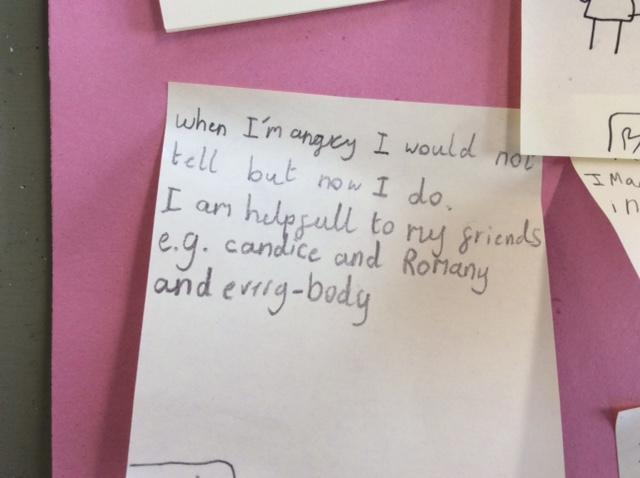 when I'm angry I would not
tell but now I do.
I am helpfull to my friends
e.g. candice and Romany
and every-body
I Ma
in